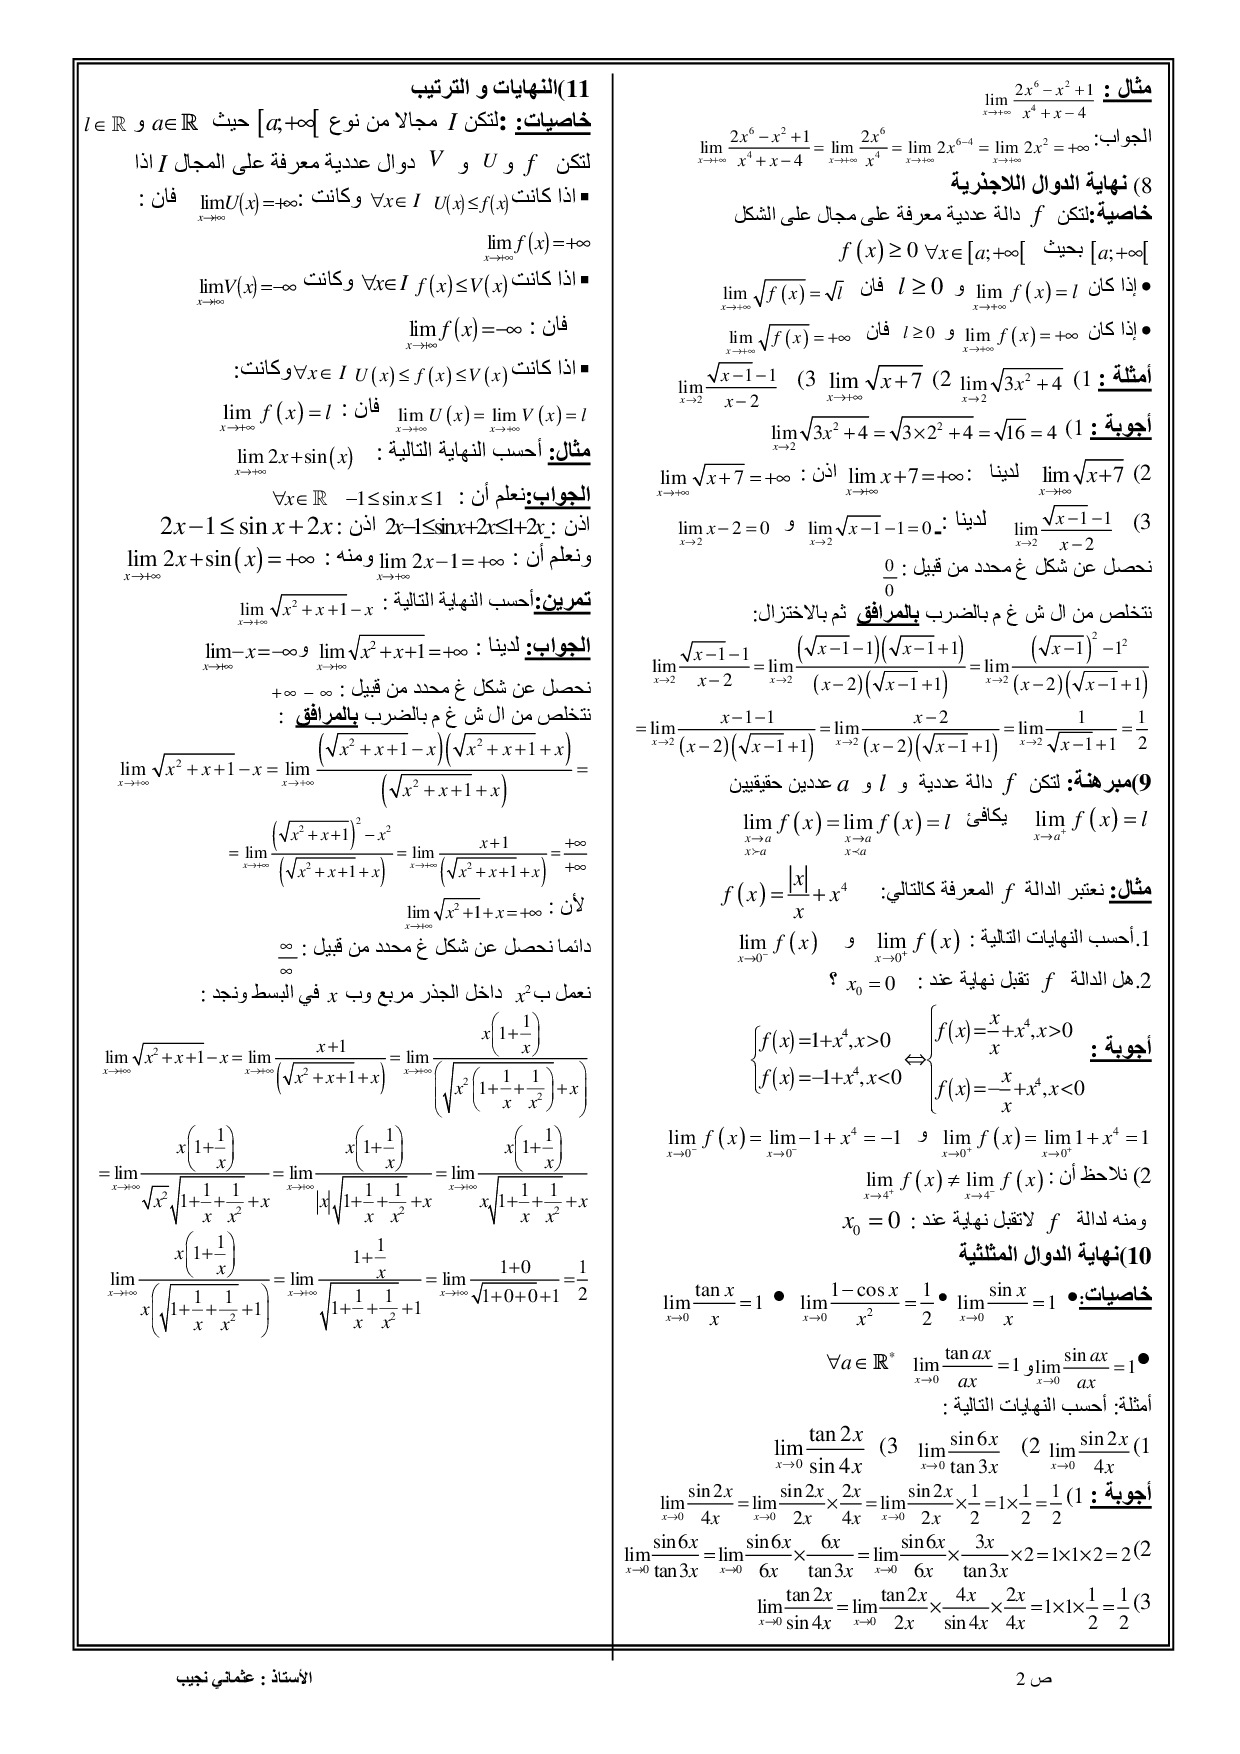 مثال : $\lim_{x\to+\infty}\frac{2x^6-x^2+1}{x^4+x-4}$
الجواب: $\lim_{x\to+\infty}\frac{2x^6-x^2+1}{x^4+x-4}=\lim_{x\to+\infty}\frac{2x^6}{x^4}=\lim_{x\to+\infty}2x^{6-4}=\lim_{x\to+\infty}2x^2=+\infty$
8) نهاية الدوال اللاجذرية
خاصية:لتكن $f$ دالة عددية معرفة على مجال على الشكل
$[a;+\infty[$ بحيث $f(x)\geq 0\ \forall x\in[a;+\infty[$
• إذا كان $\lim_{x\to+\infty}f(x)=l$ و $l\geq 0$ فان $\lim_{x\to+\infty}\sqrt{f(x)}=\sqrt{l}$
• إذا كان $\lim_{x\to+\infty}f(x)=+\infty$ و $l\geq 0$ فان $\lim_{x\to+\infty}\sqrt{f(x)}=+\infty$
أمثلة : 1) $\lim_{x\to2}\sqrt{3x^2+4}$ 2) $\lim_{x\to+\infty}\sqrt{x+7}$ 3) $\lim_{x\to2}\frac{\sqrt{x-1}-1}{x-2}$
أجوبة : 1) $\lim_{x\to2}\sqrt{3x^2+4}=\sqrt{3\times2^2+4}=\sqrt{16}=4$
2) $\lim_{x\to+\infty}\sqrt{x+7}$ لدينا : $\lim_{x\to+\infty}x+7=+\infty$ اذن : $\lim_{x\to+\infty}\sqrt{x+7}=+\infty$
3) $\lim_{x\to2}\frac{\sqrt{x-1}-1}{x-2}$ لدينا : $\lim_{x\to2}\sqrt{x-1}-1=0$ و $\lim_{x\to2}x-2=0$
نحصل عن شكل غ محدد من قبيل : $\frac{0}{0}$
نتخلص من ال ش غ م بالضرب بالمرافق ثم بالاختزال:
$\lim_{x\to2}\frac{\sqrt{x-1}-1}{x-2}=\lim_{x\to2}\frac{(\sqrt{x-1}-1)(\sqrt{x-1}+1)}{(x-2)(\sqrt{x-1}+1)}=\lim_{x\to2}\frac{(\sqrt{x-1})^2-1^2}{(x-2)(\sqrt{x-1}+1)}$
$=\lim_{x\to2}\frac{x-1-1}{(x-2)(\sqrt{x-1}+1)}=\lim_{x\to2}\frac{x-2}{(x-2)(\sqrt{x-1}+1)}=\lim_{x\to2}\frac{1}{\sqrt{x-1}+1}=\frac{1}{2}$
9)مبرهنة: لتكن $f$ دالة عددية و $l$ و $a$ عددين حقيقيين
$\lim_{x\to a^+}f(x)=l$ يكافئ $\lim_{x\to a, x\succ a}f(x)=\lim_{x\to a, x\prec a}f(x)=l$
مثال: نعتبر الدالة $f$ المعرفة كالتالي: $f(x)=\frac{|x|}{x}+x^4$
1.أحسب النهايات التالية : $\lim_{x\to0^+}f(x)$ و $\lim_{x\to0^-}f(x)$
2.هل الدالة $f$ تقبل نهاية عند : $x_0=0$ ؟
أجوبة : $\begin{cases}f(x)=\frac{x}{x}+x^4,x>0\\f(x)=-\frac{x}{x}+x^4,x<0\end{cases}\Leftrightarrow\begin{cases}f(x)=1+x^4,x>0\\f(x)=-1+x^4,x<0\end{cases}$
$\lim_{x\to0^+}f(x)=\lim_{x\to0^+}1+x^4=1$ و $\lim_{x\to0^-}f(x)=\lim_{x\to0^-}-1+x^4=-1$
2) نلاحظ أن : $\lim_{x\to4^+}f(x)\neq\lim_{x\to4^-}f(x)$
ومنه لدالة $f$ لاتقبل نهاية عند : $x_0=0$
10)نهاية الدوال المثلثية
خاصيات:• $\lim_{x\to0}\frac{\sin x}{x}=1$ • $\lim_{x\to0}\frac{1-\cos x}{x^2}=\frac{1}{2}$ • $\lim_{x\to0}\frac{\tan x}{x}=1$
• $\lim_{x\to0}\frac{\sin ax}{ax}=1$ و $\lim_{x\to0}\frac{\tan ax}{ax}=1$ $\forall a\in\mathbb{R}^*$
أمثلة: أحسب النهايات التالية :
1) $\lim_{x\to0}\frac{\sin2x}{4x}$ 2) $\lim_{x\to0}\frac{\sin6x}{\tan3x}$ 3) $\lim_{x\to0}\frac{\tan2x}{\sin4x}$
أجوبة : 1) $\lim_{x\to0}\frac{\sin2x}{4x}=\lim_{x\to0}\frac{\sin2x}{2x}\times\frac{2x}{4x}=\lim_{x\to0}\frac{\sin2x}{2x}\times\frac{1}{2}=1\times\frac{1}{2}=\frac{1}{2}$
2) $\lim_{x\to0}\frac{\sin6x}{\tan3x}=\lim_{x\to0}\frac{\sin6x}{6x}\times\frac{6x}{\tan3x}=\lim_{x\to0}\frac{\sin6x}{6x}\times\frac{3x}{\tan3x}\times2=1\times1\times2=2$
3) $\lim_{x\to0}\frac{\tan2x}{\sin4x}=\lim_{x\to0}\frac{\tan2x}{2x}\times\frac{4x}{\sin4x}\times\frac{2x}{4x}=1\times1\times\frac{1}{2}=\frac{1}{2}$
11)النهايات و الترتيب
خاصيات: :لتكن $I$ مجالا من نوع $[a;+\infty[$ حيث $a\in\mathbb{R}$ و $l\in\mathbb{R}$
لتكن $f$ و $U$ و $V$ دوال عددية معرفة على المجال $I$ اذا
▪ اذا كانت $\forall x\in I\ U(x)\leq f(x)$ وكانت : $\lim_{x\to+\infty}U(x)=+\infty$ فان :
$\lim_{x\to+\infty}f(x)=+\infty$
▪ اذا كانت $\forall x\in I\ f(x)\leq V(x)$ وكانت $\lim_{x\to+\infty}V(x)=-\infty$
فان : $\lim_{x\to+\infty}f(x)=-\infty$
▪ اذا كانت $\forall x\in I\ U(x)\leq f(x)\leq V(x)$ وكانت:
$\lim_{x\to+\infty}U(x)=\lim_{x\to+\infty}V(x)=l$ فان : $\lim_{x\to+\infty}f(x)=l$
مثال: أحسب النهاية التالية : $\lim_{x\to+\infty}2x+\sin(x)$
الجواب:نعلم أن : $-1\leq\sin x\leq1$ $\forall x\in\mathbb{R}$
اذن : $2x-1\leq\sin x+2x\leq1+2x$ اذن : $2x-1\leq\sin x+2x$
ونعلم أن : $\lim_{x\to+\infty}2x-1=+\infty$ ومنه : $\lim_{x\to+\infty}2x+\sin(x)=+\infty$
تمرين:أحسب النهاية التالية : $\lim_{x\to+\infty}\sqrt{x^2+x+1}-x$
الجواب: لدينا : $\lim_{x\to+\infty}\sqrt{x^2+x+1}=+\infty$ و $\lim_{x\to+\infty}-x=-\infty$
نحصل عن شكل غ محدد من قبيل : $+\infty-\infty$
نتخلص من ال ش غ م بالضرب بالمرافق :
$\lim_{x\to+\infty}\sqrt{x^2+x+1}-x=\lim_{x\to+\infty}\frac{(\sqrt{x^2+x+1}-x)(\sqrt{x^2+x+1}+x)}{(\sqrt{x^2+x+1}+x)}=$
$=\lim_{x\to+\infty}\frac{(\sqrt{x^2+x+1})^2-x^2}{(\sqrt{x^2+x+1}+x)}=\lim_{x\to+\infty}\frac{x+1}{(\sqrt{x^2+x+1}+x)}=\frac{+\infty}{+\infty}$
لأن : $\lim_{x\to+\infty}\sqrt{x^2+1}+x=+\infty$
دائما نحصل عن شكل غ محدد من قبيل : $\frac{\infty}{\infty}$
نعمل ب $x^2$ داخل الجذر مربع وب $x$ في البسط ونجد :
$\lim_{x\to+\infty}\sqrt{x^2+x+1}-x=\lim_{x\to+\infty}\frac{x+1}{(\sqrt{x^2+x+1}+x)}=\lim_{x\to+\infty}\frac{x(1+\frac{1}{x})}{(\sqrt{x^2(1+\frac{1}{x}+\frac{1}{x^2})}+x)}$
$=\lim_{x\to+\infty}\frac{x(1+\frac{1}{x})}{\sqrt{x^2}\sqrt{1+\frac{1}{x}+\frac{1}{x^2}}+x}=\lim_{x\to+\infty}\frac{x(1+\frac{1}{x})}{|x|\sqrt{1+\frac{1}{x}+\frac{1}{x^2}}+x}=\lim_{x\to+\infty}\frac{x(1+\frac{1}{x})}{x\sqrt{1+\frac{1}{x}+\frac{1}{x^2}}+x}$
$\lim_{x\to+\infty}\frac{x(1+\frac{1}{x})}{x(\sqrt{1+\frac{1}{x}+\frac{1}{x^2}}+1)}=\lim_{x\to+\infty}\frac{1+\frac{1}{x}}{\sqrt{1+\frac{1}{x}+\frac{1}{x^2}}+1}=\lim_{x\to+\infty}\frac{1+0}{\sqrt{1+0+0}+1}=\frac{1}{2}$
ص 2
الأستاذ : عثماني نجيب